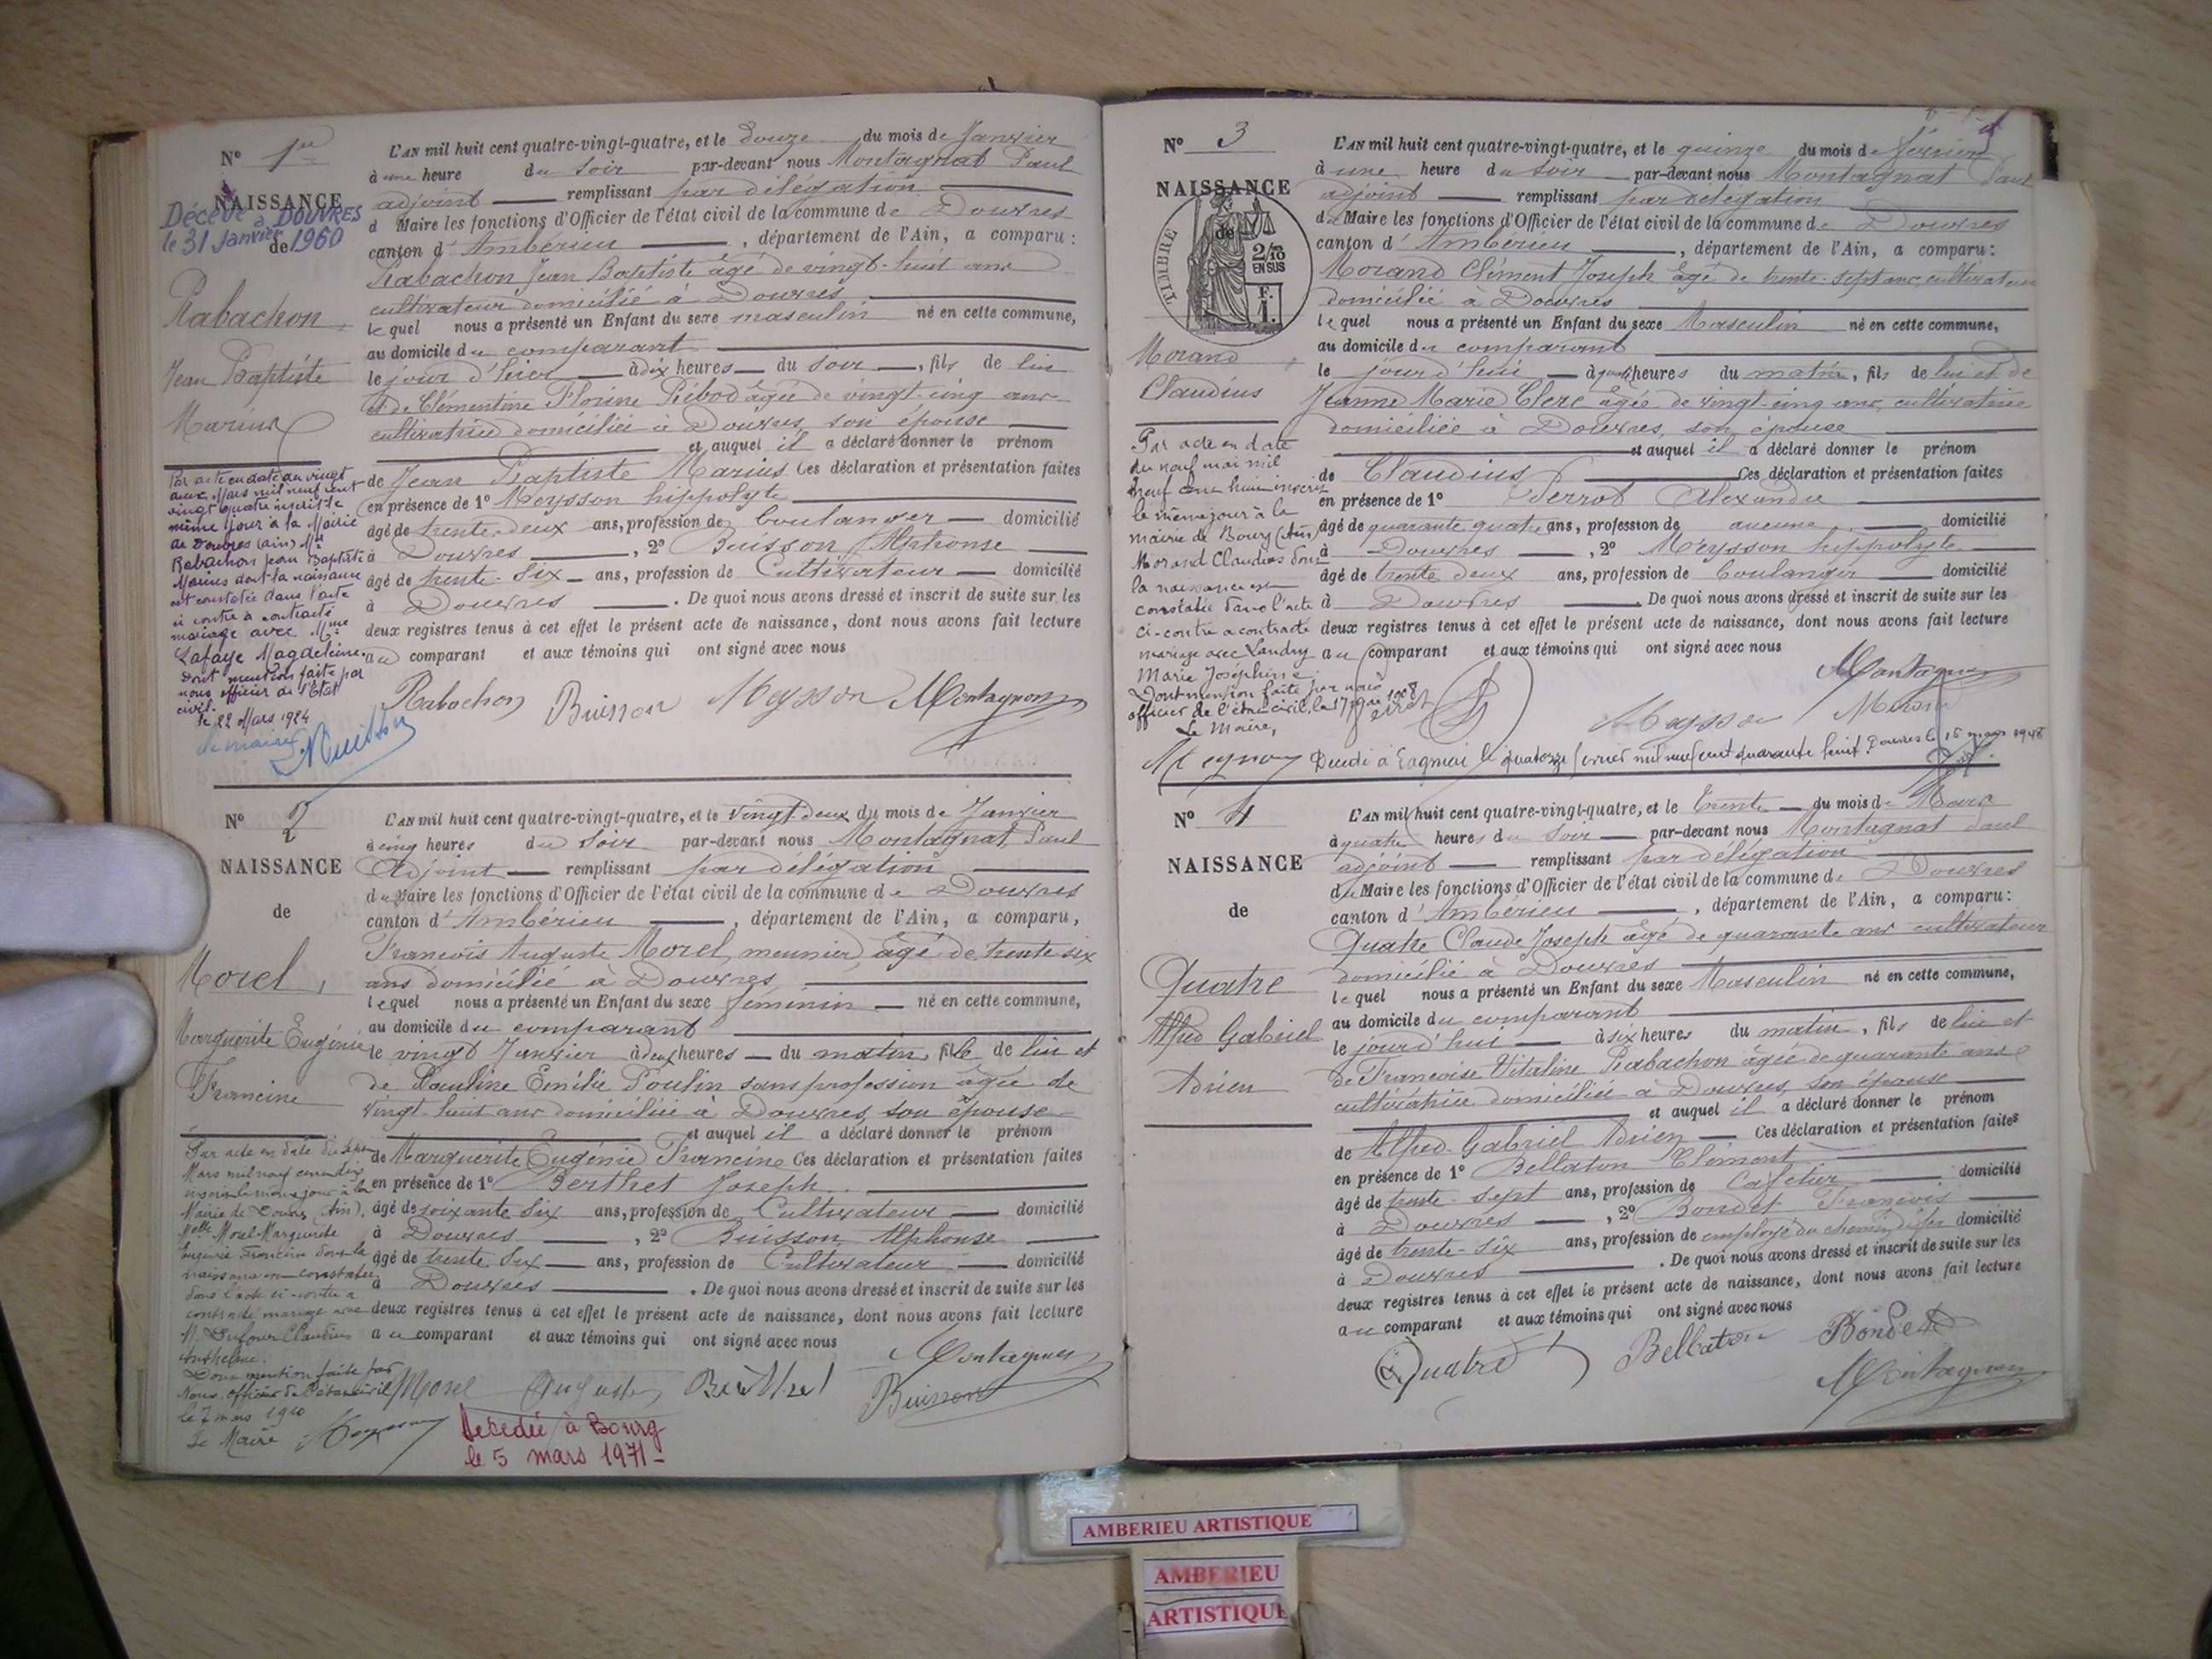 N° 1er
NAISSANCE
de
Décédé à DOUVRES
le 31 Janvier 1960
Rabachon
Jean Baptiste
Marius
Par acte en date du vingt
deux Mars mil neuf cent
vingt quatre inscrit le
même jour à la Mairie
de Douvres (ain) Mr
Rabachon Jean Baptiste
Marius dont la naissance
est constatée dans l'acte
ci contre a contracté
mariage avec Mme
Lafaye Magdeleine.
Dont mention faite par
nous officier de l'Etat
civil.
le 22 Mars 1924
Le maire
L'AN mil huit cent quatre-vingt-quatre, et le douze du mois de Janvier
à une heure du soir par-devant nous Montagnat Paul
adjoint remplissant par délégation
d Maire les fonctions d'Officier de l'état civil de la commune de Douvres
canton d'Ambérieu, département de l'Ain, a comparu:
Rabachon Jean Baptiste âgé de vingt-huit ans
cultivateur domicilié à Douvres
lequel nous a présenté un Enfant du sexe masculin né en cette commune,
au domicile du comparant
le jour d'hier à dix heures du soir, fils de lui
et de Clémentine Florine Ribod âgée de vingt-cinq ans
cultivatrice domiciliée à Douvres, son épouse
et auquel il a déclaré donner le prénom
de Jean Baptiste Marius Ces déclaration et présentation faites
en présence de 1° Meysson hippolyte
âgé de trente-deux ans, profession de boulanger domicilié
à Douvres, 2° Buisson Alphonse
âgé de trente-six ans, profession de Cultivateur domicilié
à Douvres. De quoi nous avons dressé et inscrit de suite sur les
deux registres tenus à cet effet le présent acte de naissance, dont nous avons fait lecture
au comparant et aux témoins qui ont signé avec nous
Rabachon Buisson Meysson Montagnat
N° 2
NAISSANCE
de
Morel,
Marguerite Eugénie
Francine
Par acte en date du sept
Mars mil neuf cent dix
inscrit le même jour à la
Mairie de Douvres (Ain),
Melle Morel Marguerite
Eugénie Francine dont la
naissance est constatée
dans l'acte ci-contre a
contracté mariage avec
M. Dufour Claudius
Anthelme.
Dont mention faite par
Nous, officier de l'état civil
le 7 mars 1910
Le Maire Meysson
L'AN mil huit cent quatre-vingt-quatre, et le vingt deux du mois de Janvier
à cinq heures du soir par-devant nous Montagnat Paul
Adjoint remplissant par délégation
du Maire les fonctions d'Officier de l'état civil de la commune de Douvres
canton d'Ambérieu, département de l'Ain, a comparu,
François Auguste Morel, meunier, âgé de trente six
ans domicilié à Douvres
lequel nous a présenté un Enfant du sexe féminin né en cette commune,
au domicile du comparant
le vingt Janvier à deux heures du matin, fille de lui et
de Pauline Emélie Poulin sans profession âgée de
vingt-huit ans domiciliée à Douvres, son épouse
et auquel il a déclaré donner le prénom
de Marguerite Eugénie Francine Ces déclaration et présentation faites
en présence de 1° Berthet Joseph
âgé de soixante six ans, profession de Cultivateur domicilié
à Douvres, 2° Buisson Alphonse
âgé de trente six ans, profession de Cultivateur domicilié
à Douvres. De quoi nous avons dressé et inscrit de suite sur les
deux registres tenus à cet effet le présent acte de naissance, dont nous avons fait lecture
au comparant et aux témoins qui ont signé avec nous
Morel Auguste Berthet Montagnat
Buisson
Décédée à Bourg
le 5 mars 1971-
N° 3
NAISSANCE
de
TIMBRE
2/10
EN SUS
F.
1.
Morand
Claudius
Par acte en date
du neuf mai mil
neuf cent huit inscrit
le même jour à la
mairie de Bourg (Ain)
Morand Claudius dont
la naissance est
constatée dans l'acte
ci-contre a contracté
mariage avec Landry
Marie Joséphine.
Dont mention faite par nous
officier de l'état civil, le 17 mai 1908
Le Maire,
Meysson
L'AN mil huit cent quatre-vingt-quatre, et le quinze du mois de février
à une heure du soir par-devant nous Montagnat Paul
adjoint remplissant par délégation
du Maire les fonctions d'Officier de l'état civil de la commune de Douvres
canton d'Ambérieu, département de l'Ain, a comparu:
Morand Clément Joseph âgé de trente-sept ans, cultivateur
domicilié à Douvres
lequel nous a présenté un Enfant du sexe Masculin né en cette commune,
au domicile du comparant
le jour d'hui à quatre heures du matin, fils de lui et de
Jeanne Marie Clerc âgée de vingt-cinq ans, cultivatrice
domiciliée à Douvres, son épouse
et auquel il a déclaré donner le prénom
de Claudius Ces déclaration et présentation faites
en présence de 1° Perrot Alexandre
âgé de quarante quatre ans, profession de aucune domicilié
à Douvres, 2° Meysson hippolyte
âgé de trente deux ans, profession de boulanger domicilié
à Douvres. De quoi nous avons dressé et inscrit de suite sur les
deux registres tenus à cet effet le présent acte de naissance, dont nous avons fait lecture
au comparant et aux témoins qui ont signé avec nous
Montagnat
Perrot Meysson Morand
Décédé à Lagnieu le quatorze février mil neuf cent quarante huit. Douvres le 15 mars 1948
N° 4
NAISSANCE
de
Quatre
Alfred Gabriel
Adrien
L'AN mil huit cent quatre-vingt-quatre, et le trente du mois de Mars
à quatre heures du soir par-devant nous Montagnat Paul
adjoint remplissant par délégation
du Maire les fonctions d'Officier de l'état civil de la commune de Douvres
canton d'Ambérieu, département de l'Ain, a comparu:
Quatre Claude Joseph âgé de quarante ans cultivateur
domicilié à Douvres
lequel nous a présenté un Enfant du sexe Masculin né en cette commune,
au domicile du comparant
le jour d'hui à six heures du matin, fils de lui et
de Françoise Vitaline Rabachon âgée de quarante ans
cultivatrice domiciliée à Douvres, son épouse
et auquel il a déclaré donner le prénom
de Alfred Gabriel Adrien Ces déclaration et présentation faites
en présence de 1° Bellaton Clément
âgé de trente-sept ans, profession de Cafetier domicilié
à Douvres, 2° Bondet François
âgé de trente-six ans, profession de employé du chemin de fer domicilié
à Douvres. De quoi nous avons dressé et inscrit de suite sur les
deux registres tenus à cet effet le présent acte de naissance, dont nous avons fait lecture
au comparant et aux témoins qui ont signé avec nous
Quatre Bellaton Bondet
Montagnat
AMBERIEU ARTISTIQUE
AMBERIEU
ARTISTIQUE